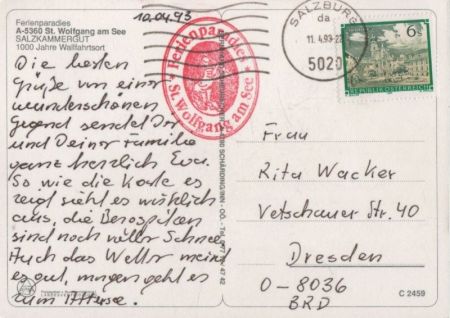 Ferienparadies
A-5360 St. Wolfgang am See
SALZKAMMERGUT
1000 Jahre Wallfahrtsort
10.04.93
Ferienparadies
St. Wolfgang am See
SALZBURG
da
11.4.93
5020
6 S
REPUBLIK ÖSTERREICH
Die besten
Grüße von einer
wunderschönen
Gegend sendet Dir
und Deiner Familie
ganz herzlich Eva.
So wie die Karte es
zeigt sieht es wirklich
aus, die Bergspitzen
sind noch voller Schnee.
Auch das Wetter meint
es gut, morgen geht es
zum Attersee.
Frau
Rita Wacker
Vetschauer Str. 40
Dresden
O-8036
BRD
C 2459